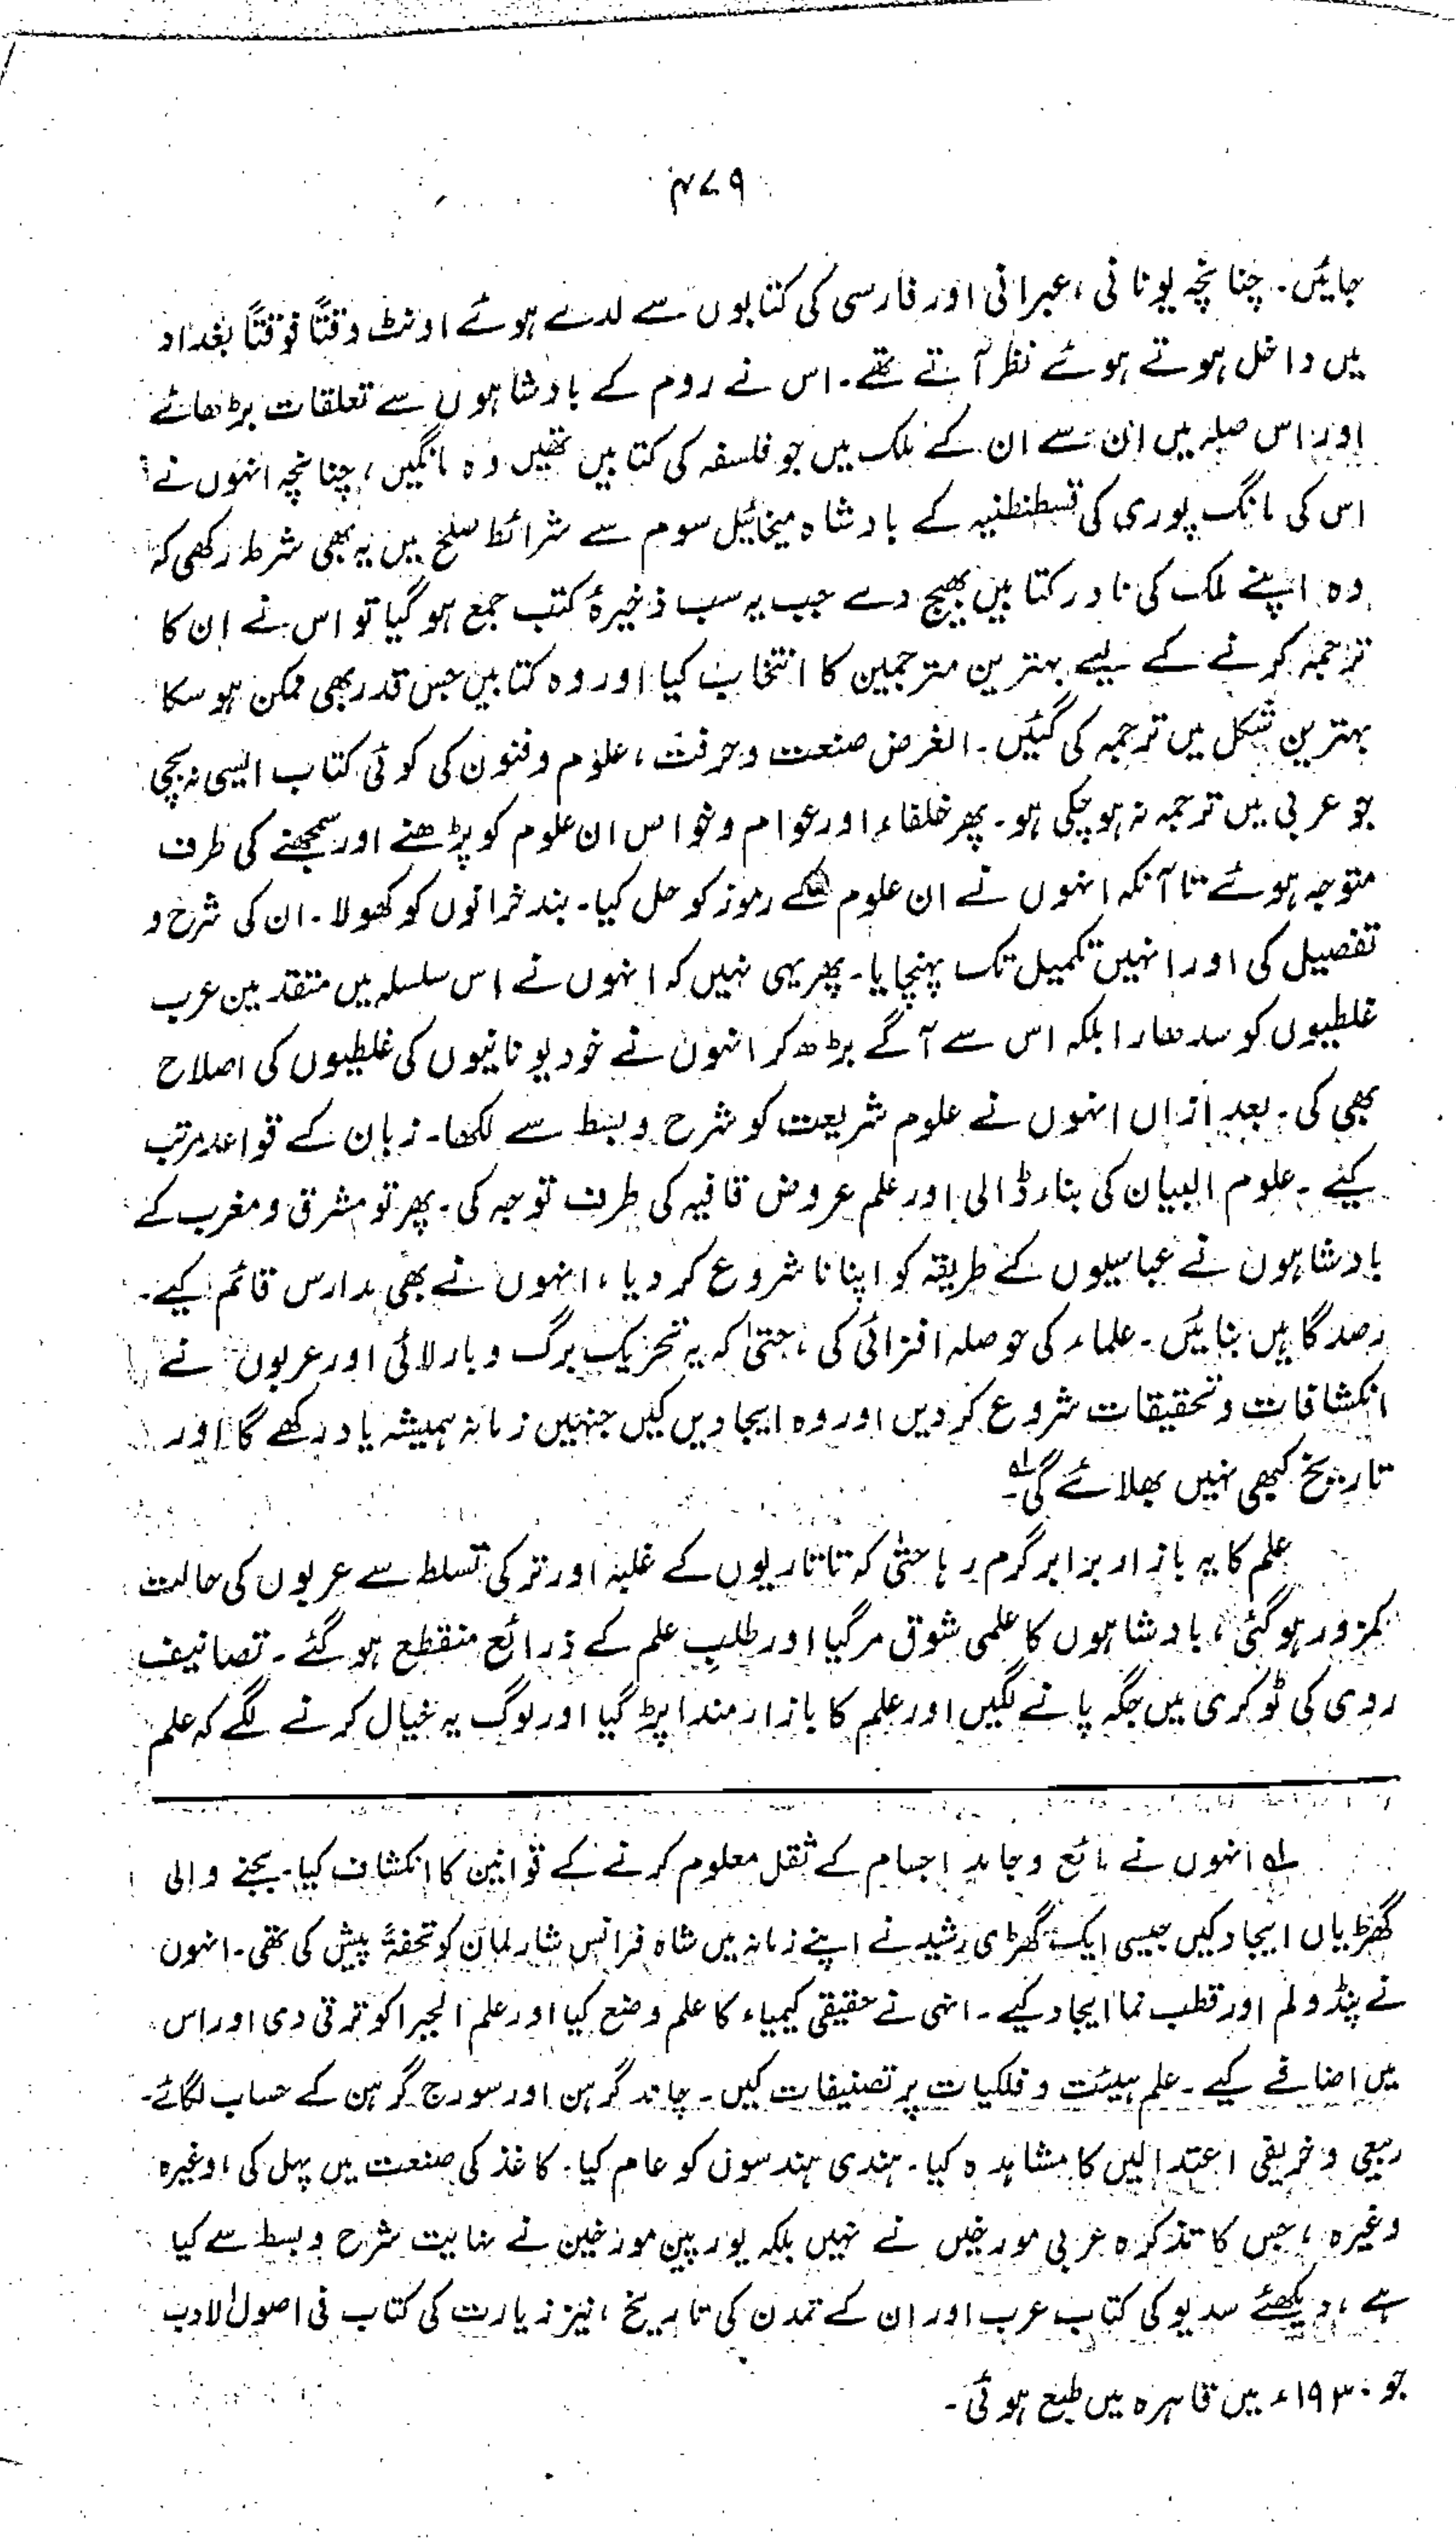 ۴۷۹
جائیں۔ چنانچہ یونانی، عبرانی اور فارسی کی کتابوں سے لدے ہوئے اونٹ وقتاً فوقتاً بغداد
میں داخل ہوتے ہوئے نظر آتے تھے۔ اس نے روم کے بادشاہوں سے تعلقات بڑھائے
اور اس صلہ میں ان سے ان کے ملک میں جو فلسفہ کی کتابیں تھیں وہ مانگیں، چنانچہ انہوں نے
اس کی مانگ پوری کی قسطنطنیہ کے بادشاہ میخائیل سوم سے شرائط صلح میں یہ بھی شرط رکھی کہ
وہ اپنے ملک کی نادر کتابیں بھیج دے جب یہ سب ذخیرۂ کتب جمع ہو گیا تو اس نے ان کا
ترجمہ کرنے کے لیے بہترین مترجمین کا انتخاب کیا اور وہ کتابیں جس قدر بھی ممکن ہو سکا
بہترین شکل میں ترجمہ کی گئیں۔ الغرض صنعت و حرفت، علوم و فنون کی کوئی کتاب ایسی نہ بچی
جو عربی میں ترجمہ نہ ہو چکی ہو۔ پھر خلفاء اور عوام و خواص ان علوم کو پڑھنے اور سمجھنے کی طرف
متوجہ ہوئے تا آنکہ انہوں نے ان علوم کے رموز کو حل کیا۔ بند خزانوں کو کھولا۔ ان کی شرح و
تفصیل کی اور انہیں تکمیل تک پہنچایا۔ پھر یہی نہیں کہ انہوں نے اس سلسلہ میں متقدمین عرب
غلطیوں کو سدھارا بلکہ اس سے آگے بڑھ کر انہوں نے خود یونانیوں کی غلطیوں کی اصلاح
بھی کی۔ بعد ازاں انہوں نے علوم شریعت کو شرح و بسط سے لکھا۔ زبان کے قواعد مرتب
کیئے۔ علوم البیان کی بناء ڈالی اور علم عروض قافیہ کی طرف توجہ کی۔ پھر تو مشرق و مغرب کے
بادشاہوں نے عباسیوں کے طریقہ کو اپنانا شروع کر دیا، انہوں نے بھی مدارس قائم کیے۔
رصدگاہیں بنائیں۔ علماء کی حوصلہ افزائی کی، حتیٰ کہ یہ تحریک برگ و بار لائی اور عربوں نے
انکشافات و تحقیقات شروع کر دیں اور وہ ایجادیں کیں جنہیں زمانہ ہمیشہ یاد رکھے گا اور
تاریخ کبھی نہیں بھلائے گی۔ لہ
علم کا یہ بازار برابر گرم رہا حتیٰ کہ تاتاریوں کے غلبہ اور ترکی تسلط سے عربوں کی حالت
کمزور ہو گئی، بادشاہوں کا علمی شوق مر گیا اور طلبِ علم کے ذرائع منقطع ہو گئے۔ تصانیف
ردی کی ٹوکری میں جگہ پانے لگیں اور علم کا بازار مندا پڑ گیا اور لوگ یہ خیال کرنے لگے کہ علم
لہ انہوں نے مائع و جامد اجسام کے ثقل معلوم کرنے کے قوانین کا انکشاف کیا۔ بجنے والی
گھڑیاں ایجاد کیں جیسی ایک گھڑی رشید نے اپنے زمانہ میں شاہ فرانس شارلمان کو تحفۃً پیش کی تھی۔ انہوں
نے پنڈولم اور قطب نما ایجاد کیے۔ انہی نے حقیقی کیمیاء کا علم وضع کیا اور علم الجبرا کو ترقی دی اور اس
میں اضافے کیے۔ علم ہیئت و فلکیات پر تصنیفات کیں۔ چاند گرہن اور سورج گرہن کے حساب لگائے۔
ربیعی و خریفی اعتدالیں کا مشاہدہ کیا۔ ہندی ہندسوں کو عام کیا۔ کاغذ کی صنعت میں پہل کی، وغیرہ
وغیرہ، جس کا تذکرہ عربی مورخین نے نہیں بلکہ یورپین مورخین نے نہایت شرح و بسط سے کیا
ہے، دیکھئے سدیو کی کتاب عرب اور ان کے تمدن کی تاریخ، نیز زیارت کی کتاب فی اصول الادب
جو ۱۹۳۰ء میں قاہرہ میں طبع ہوئی۔